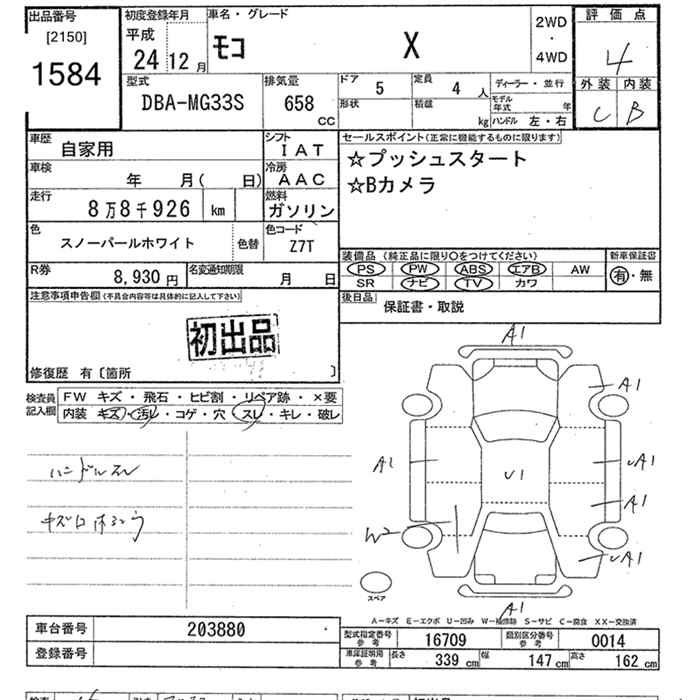 出品番号 初度登録年月 車名・グレード 2WD 評価点
[2150] 平成 ・
1584 24 12月 モコ X 4WD 4
型式 排気量 ドア 5 定員 4人 ディーラー・並行 外装 内装
DBA-MG33S 658 CC 形状 積載 kg モデル年式 年 C B
ハンドル 左・右
車歴 自家用 シフト IAT セールスポイント(正常に機能するものに限ります)
車検 年 月( 日) 冷房 AAC ☆プッシュスタート
走行 8万8千926 km 燃料 ガソリン ☆Bカメラ
色 スノーパールホワイト 色替 色コード Z7T
装備品(純正品に限り○をつけてください) 新車保証書
R券 8,930円 名変通知期限 月 日 PS PW ABS エアB AW 有・無
SR ナビ TV カワ
注意事項申告欄(不具合内容等は具体的に記入して下さい) 後日品 保証書・取説
初出品
修復歴 有〔箇所 〕
検査員記入欄 FW キズ・飛石・ヒビ割・リペア跡・×要
内装 キズ・汚レ・コゲ・穴・スレ・キレ・破レ
A1
A1
A1 U1 UA1
ハンドルスレ
A1
W2
UA1
スペア
A1
A-キズ E-エクボ U-凹み W-補修跡 S-サビ C-腐食 XX-交換済
車台番号 203880 型式指定番号参考 16709 類別区分番号参考 0014
登録番号 車庫証明用参考 長さ 339cm 幅 147cm 高さ 162cm